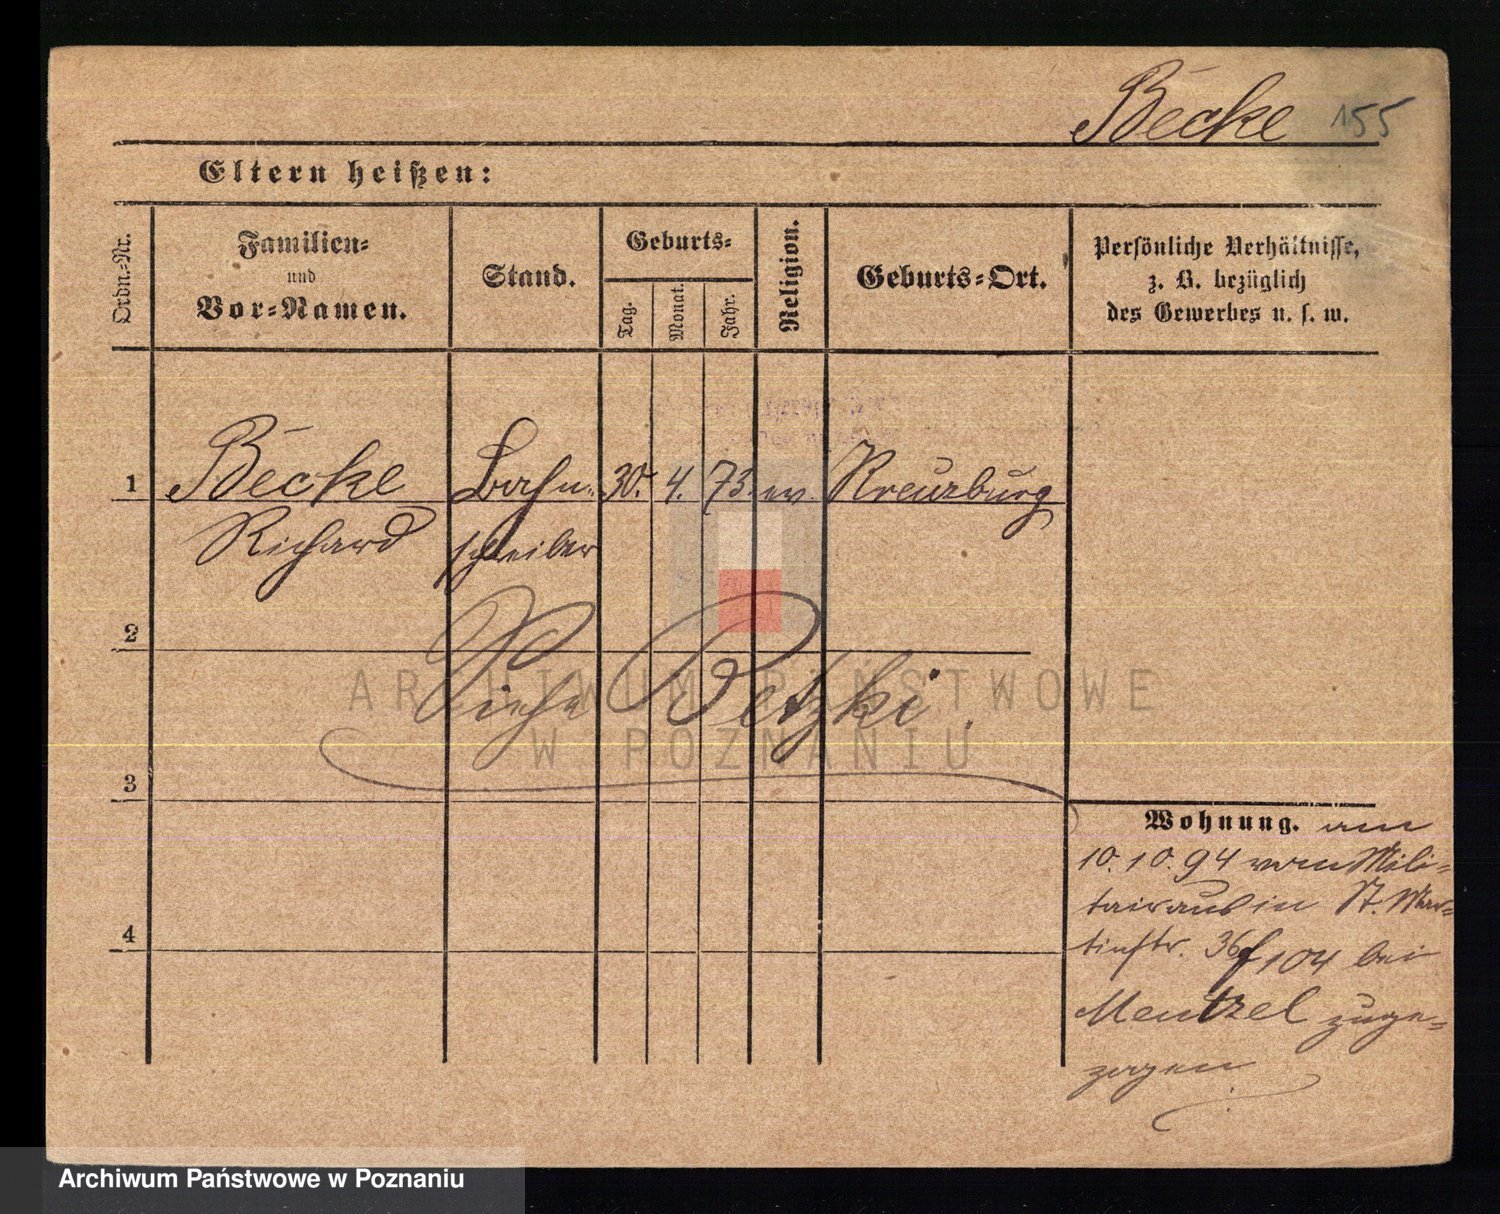 Becke 155
Eltern heißen:
Ordn.-Nr.
Familien-
und
Vor-Namen.
Stand.
Geburts-
Tag.
Monat.
Jahr.
Religion.
Geburts-Ort.
Persönliche Verhältnisse,
z. B. bezüglich
des Gewerbes u. s. w.
1 Becke Bahn- 30. 4. 73. ev. Kreuzburg
Richard schreiber
2
Siehe Petzki.
ARCHIWUM PAŃSTWOWE
W POZNANIU
3
Wohnung. am
10.10.94 vom Mili-
tair aus in St. Mar-
tinstr. 36 f 104 bei
Mentzel zuge-
zogen
4
Archiwum Państwowe w Poznaniu